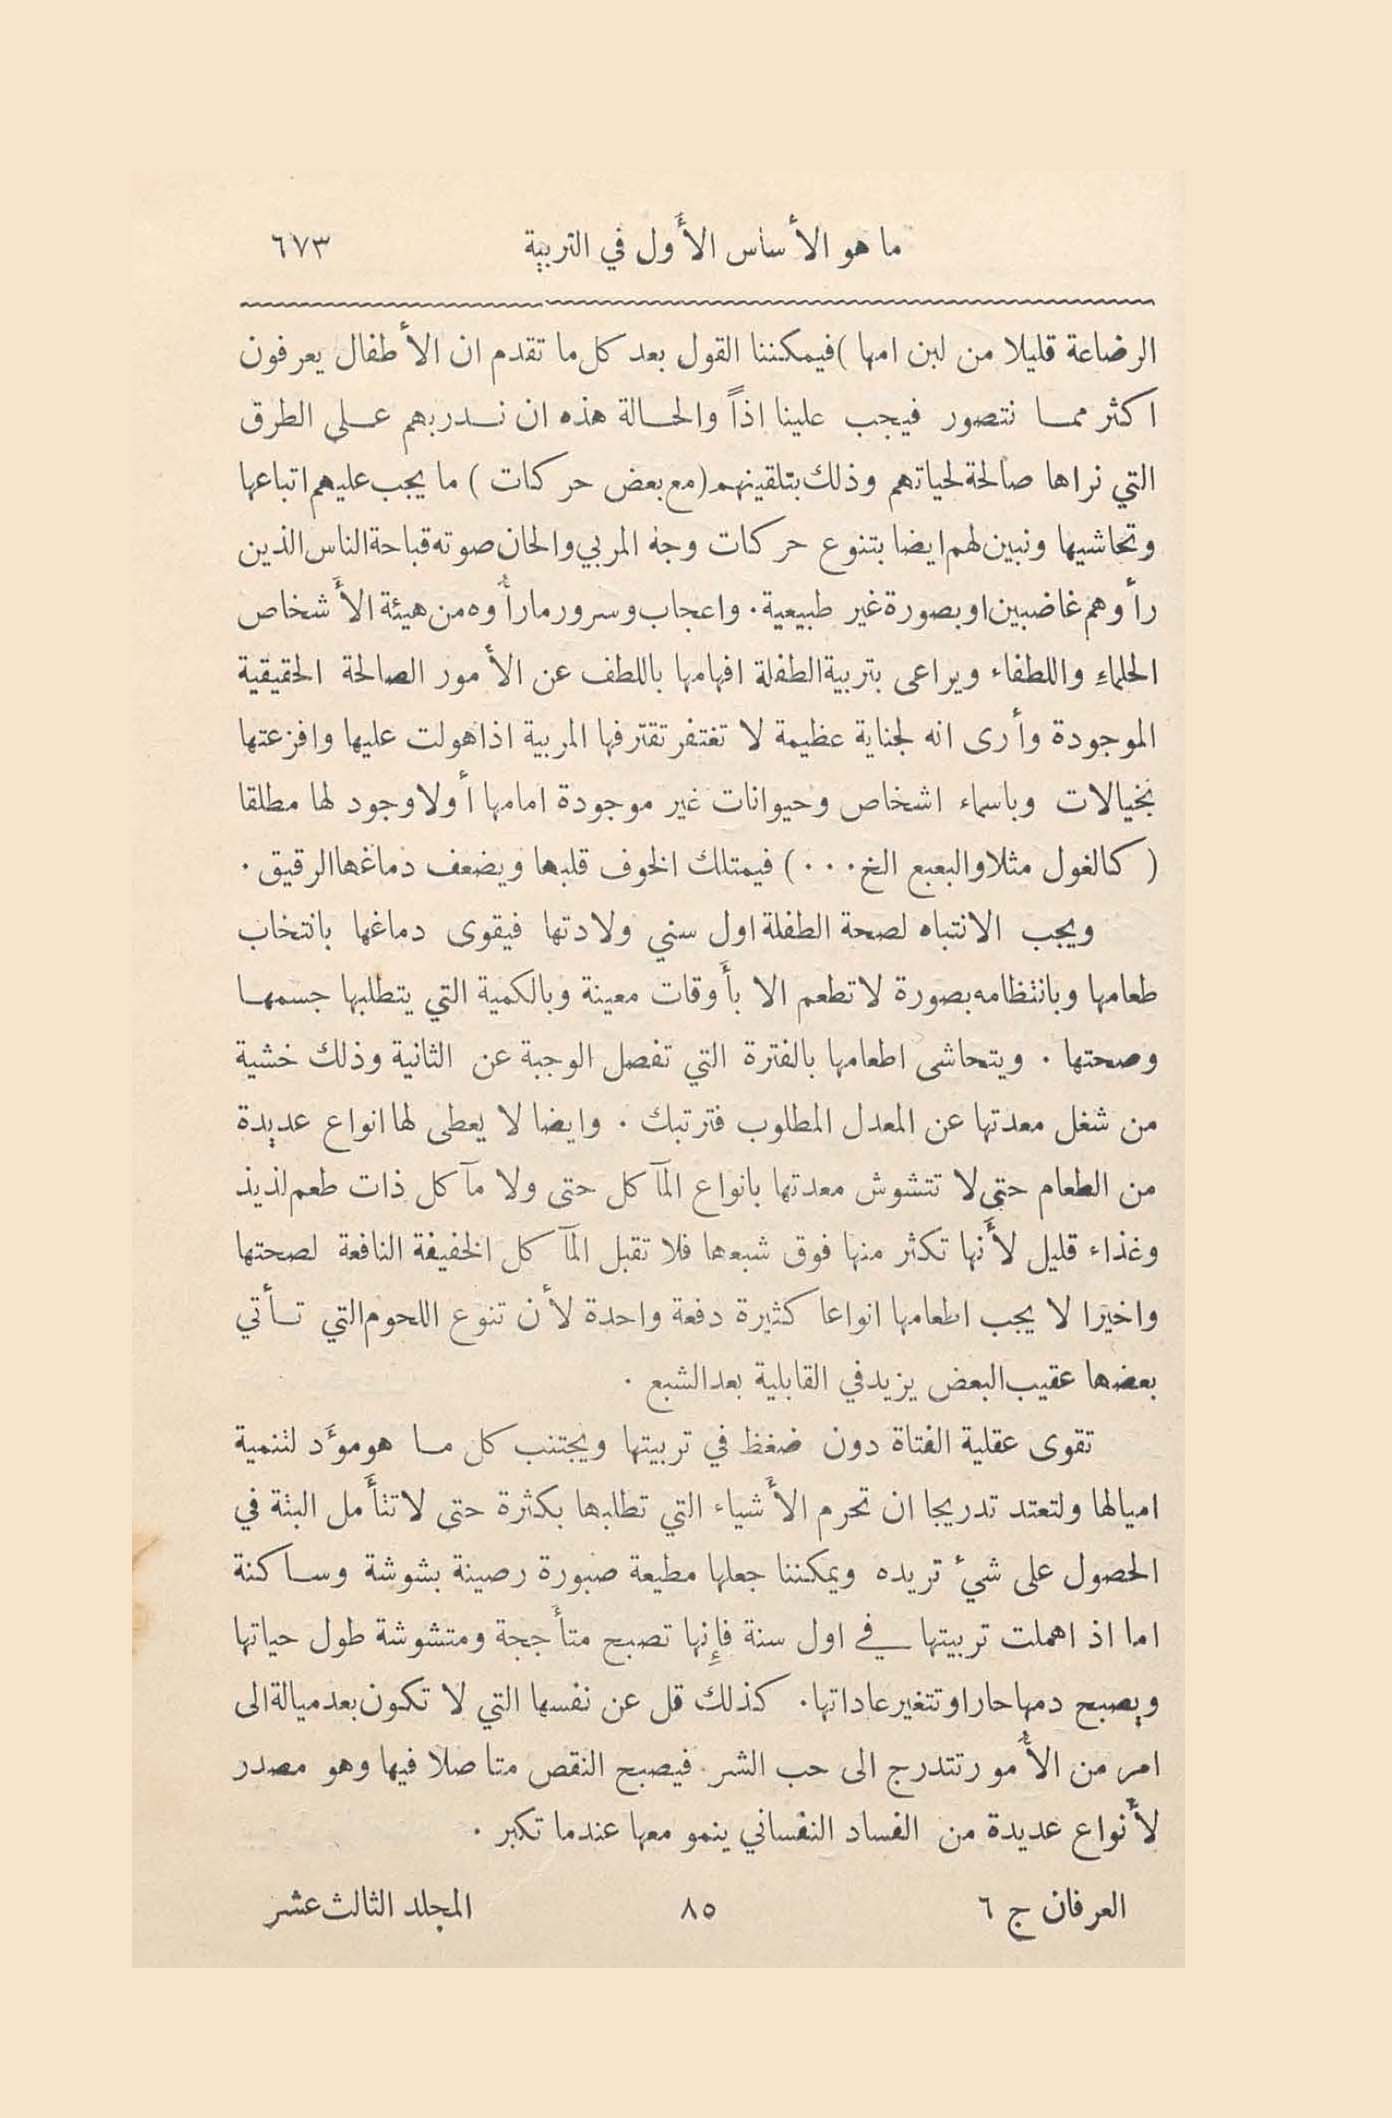 ما هو الأساس الأول في التربية ٦٧٣
الرضاعة قليلا من لبن امها ) فيمكننا القول بعد كل ما تقدم ان الأطفال يعرفون
اكثر ممـا نتصور فيجب علينا اذاً والحـالة هذه ان نـدربهم عـلى الطرق
التي نراها صالحة لحياتهم وذلك بتلقينهم (مع بعض حركات ) ما يجب عليهم اتباعها
وتحاشيها ونبين لهم ايضا بتنوع حركات وجه المربي والحان صوته قباحة الناس الذين
رأوهم غاضبين او بصورة غير طبيعية . واعجاب وسرور ما رأوه من هيئة الأشخاص
الحلماء واللطفاء ويراعى بتربية الطفلة افهامها باللطف عن الأمور الصالحة الحقيقية
الموجودة وأرى انه لجناية عظيمة لا تغتفر تقترفها المربية اذا هولت عليها وافزعتها
بخيالات وباسماء اشخاص وحيوانات غير موجودة امامها أو لا وجود لها مطلقا
( كالغول مثلا والبعبع الخ . . . ) فيمتلك الخوف قلبها ويضعف دماغها الرقيق .
ويجب الانتباه لصحة الطفلة اول سني ولادتها فيقوى دماغها بانتخاب
طعامها وبانتظامه بصورة لا تطعم الا بأوقات معينة وبالكمية التي يتطلبها جسمهـا
وصحتها . ويتحاشى اطعامها بالفترة التي تفصل الوجبة عن الثانية وذلك خشية
من شغل معدتها عن المعدل المطلوب فترتبك . وايضا لا يعطى لها انواع عديدة
من الطعام حتى لا تتشوش معدتها بانواع المآكل حتى ولا مآكل ذات طعم لذيذ
وغذاء قليل لأنها تكثر منها فوق شبعها فلا تقبل المآكل الخفيفة النافعة لصحتها
واخيرا لا يجب اطعامها انواعا كثيرة دفعة واحدة لأن تنوع اللحوم التي تـأتي
بعضها عقيب البعض يزيد في القابلية بعد الشبع .
تقوى عقلية الفتاة دون ضغظ في تربيتها ويجتنب كل مـا هو مؤد لتنمية
اميالها ولتعتد تدريجا ان تحرم الأشياء التي تطلبها بكثرة حتى لا تتأمل البتة في
الحصول على شيء تريده ويمكننا جعلها مطيعة صبورة رصينة بشوشة وسـاكنة
اما اذ اهملت تربيتها في اول سنة فإنها تصبح متأججة ومتشوشة طول حياتها
ويصبح دمها حارا وتتغير عاداتها . كذلك قل عن نفسها التي لا تكون بعد ميالة الى
امر من الأمور تتدرج الى حب الشر فيصبح النقص متاصلا فيها وهو مصدر
لأنواع عديدة من الفساد النفساني ينمو معها عندما تكبر .
العرفان ج ٦ ٨٥ المجلد الثالث عشر